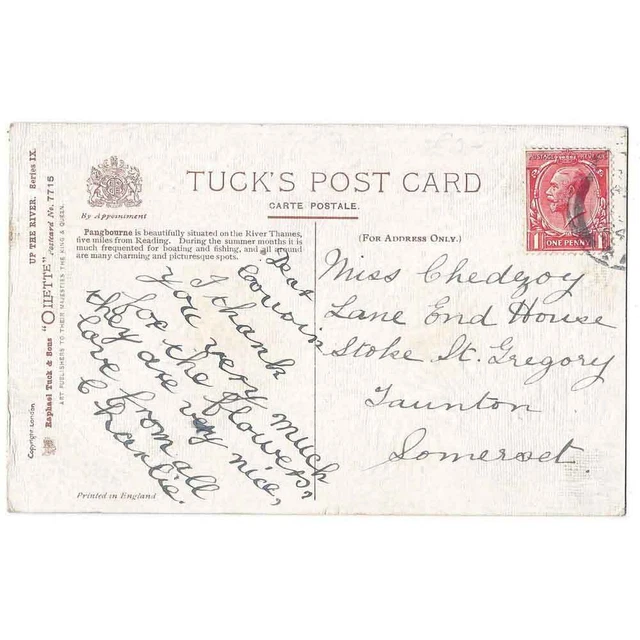 TUCK'S POST CARD
CARTE POSTALE.
By Appointment
Pangbourne is beautifully situated on the River Thames,
five miles from Reading. During the summer months it is
much frequented for boating and fishing, and all around
are many charming and picturesque spots.
(FOR ADDRESS ONLY.)
UP THE RIVER. Series IX.
Raphael Tuck & Sons "OILETTE" Postcard No. 7715
ART PUBLISHERS TO THEIR MAJESTIES THE KING & QUEEN.
Copyright London
Dear
Cousin
I thank
you very much
for the flowers,
they are very nice,
love from all
Charlie.
Miss Chedzoy
Lane End House
Stoke St. Gregory
Taunton
Somerset.
Printed in England
POSTAGE
1 ONE PENNY 1